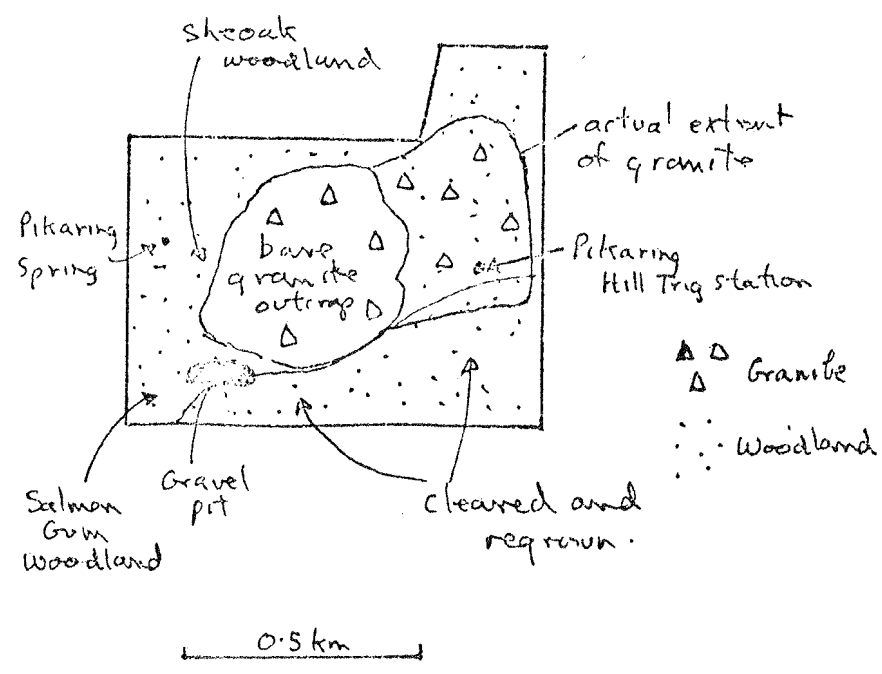 Sheoak
woodland
actual extent
of granite
Pikaring
Spring
bare
granite
outcrop
Pikaring
Hill Trig station
Granite
Woodland
Gravel
pit
Salmon
Gum
Woodland
Cleared and
regrown.
0.5 km